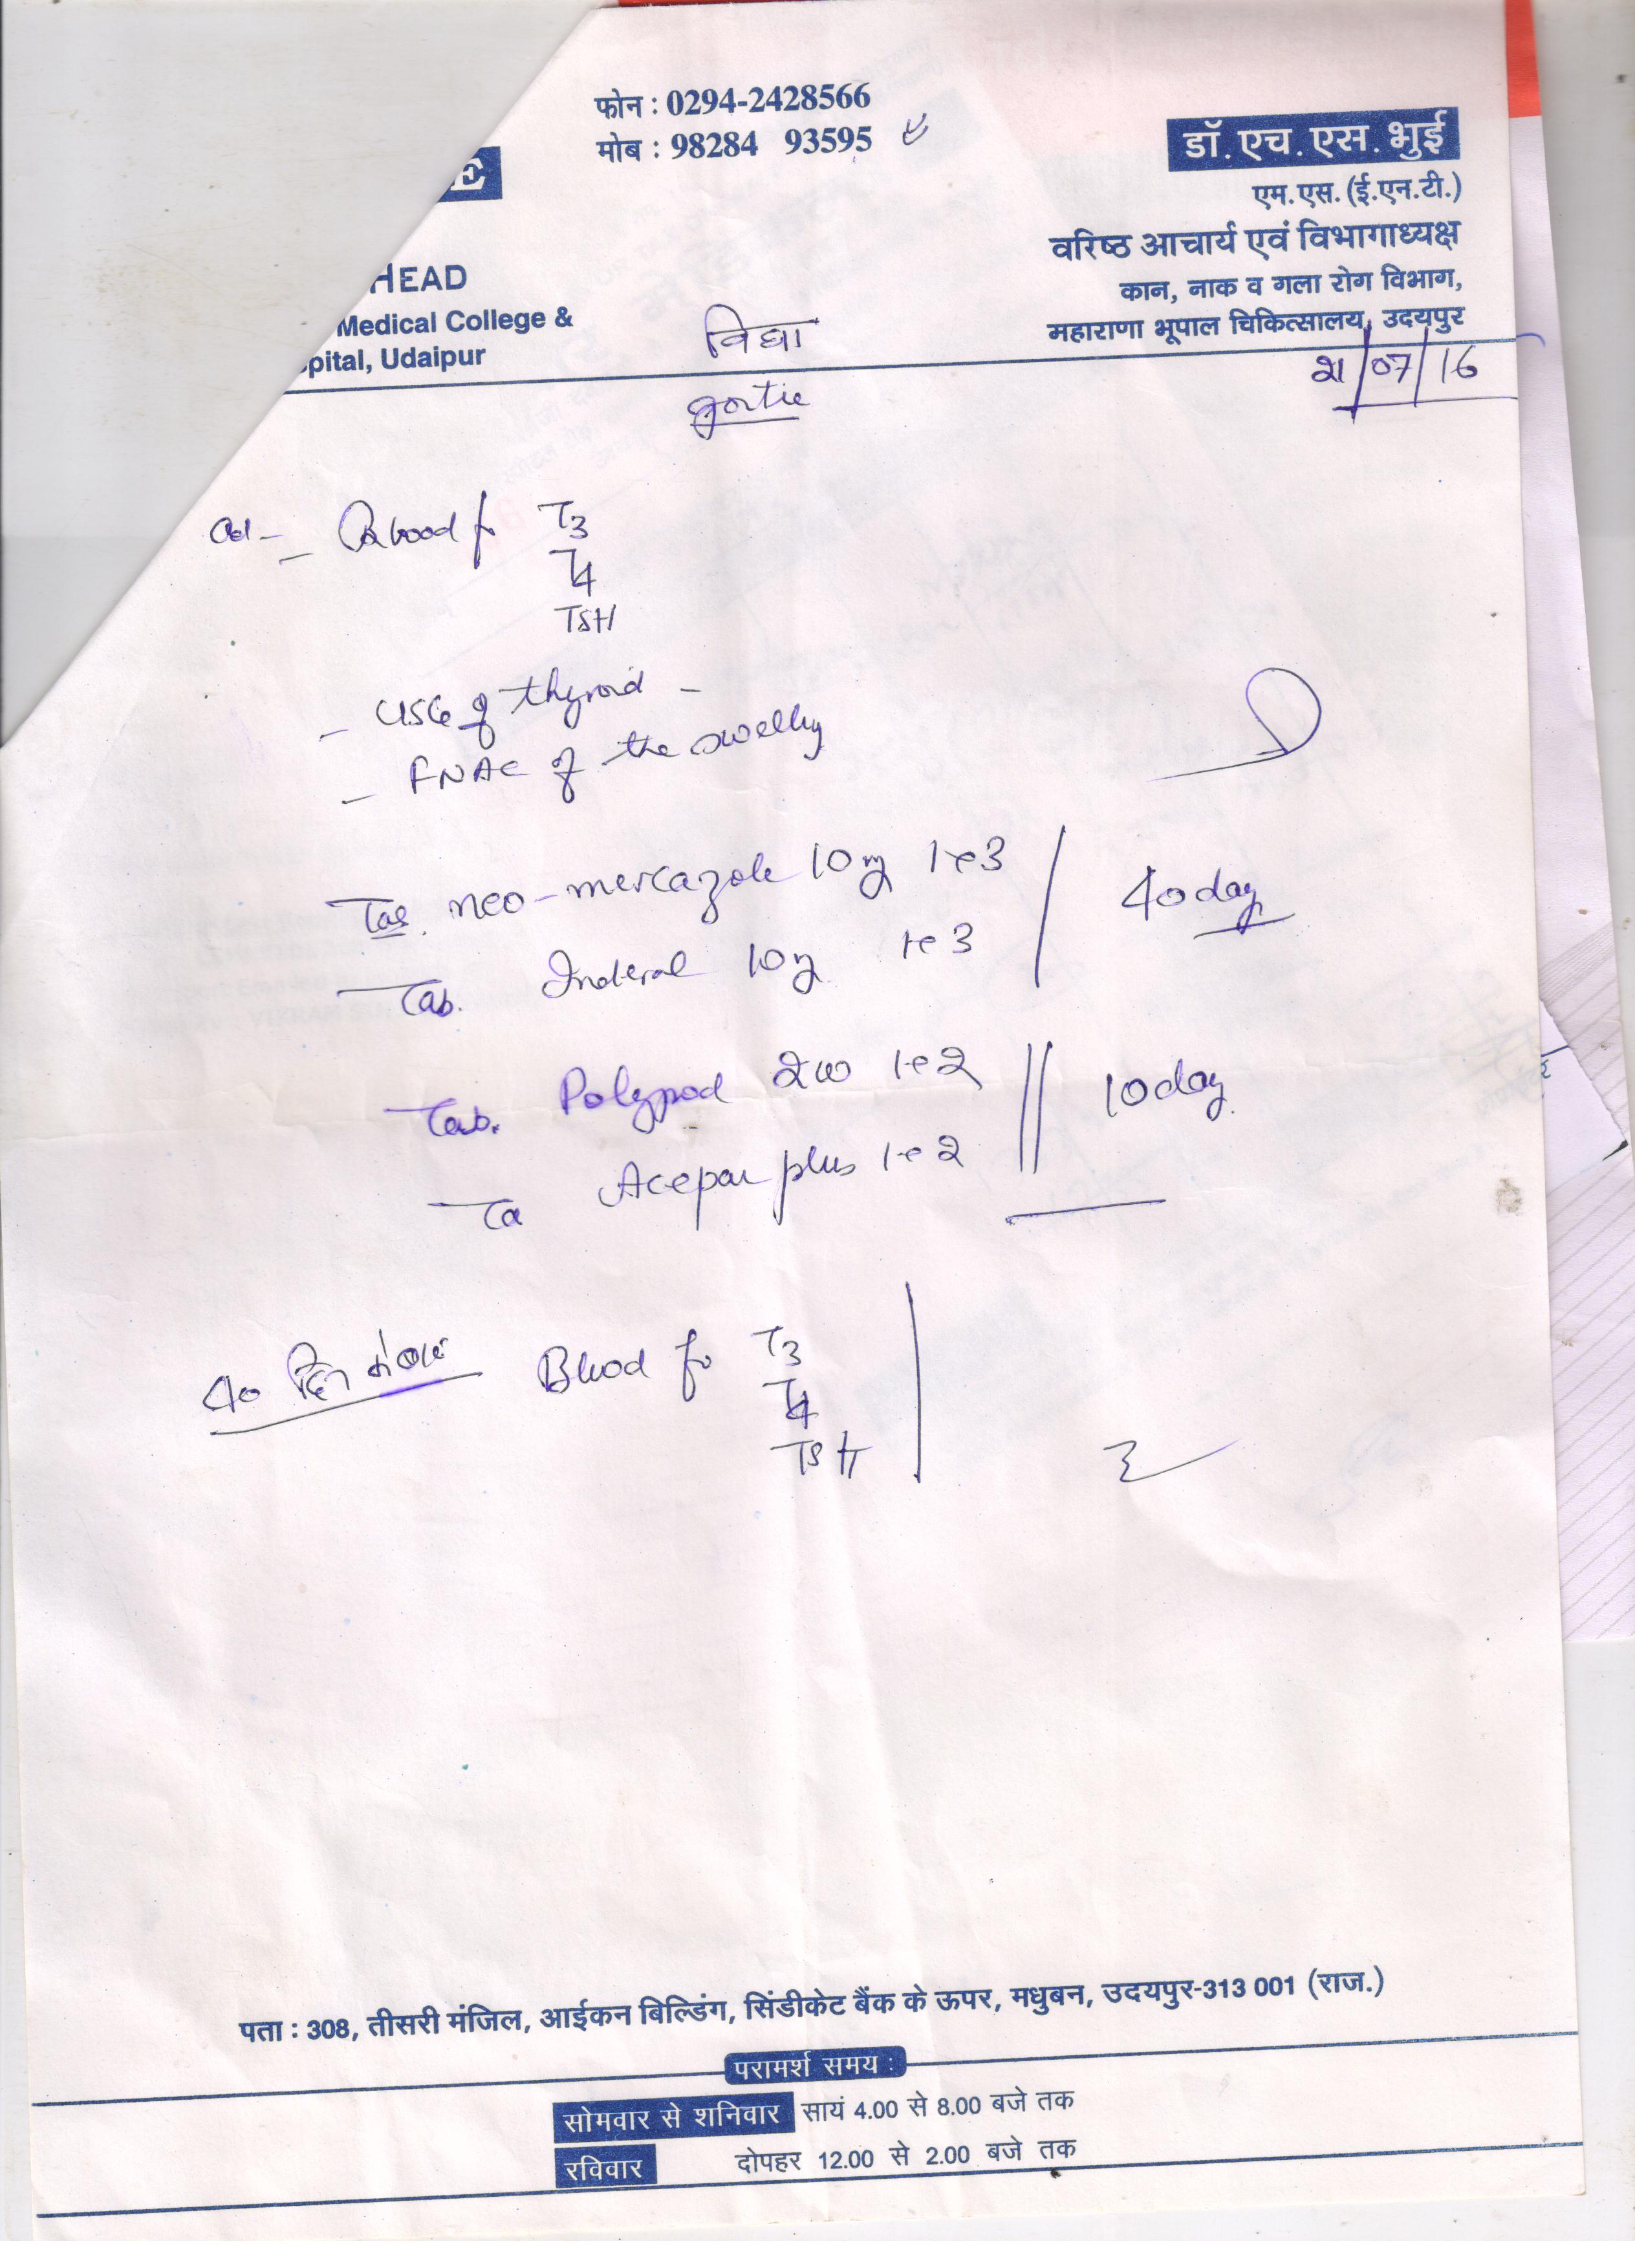 फोन : 0294-2428566
मोब : 98284 93595
डॉ. एच. एस. भुई
एम. एस. (ई.एन.टी.)
वरिष्ठ आचार्य एवं विभागाध्यक्ष
कान, नाक व गला रोग विभाग,
महाराणा भूपाल चिकित्सालय, उदयपुर
E
HEAD
Medical College &
pital, Udaipur
विद्या
21/07/16
Ad - - Blood for T3
T4
TSH
- USG of thyroid -
- FNAC of the swelling
Tab. neo-mercazole 10mg 1-e3 40 day
Tab. Inderal 10mg 1-e3
Tab. Polypod 200 1-e2 10 day
Ta Acepar plus 1-e2
40 दिन में बाद Blood for T3
T4
TSH
पता : 308, तीसरी मंजिल, आईकन बिल्डिंग, सिंडीकेट बैंक के ऊपर, मधुबन, उदयपुर-313 001 (राज.)
परामर्श समय :
सोमवार से शनिवार सायं 4.00 से 8.00 बजे तक
रविवार दोपहर 12.00 से 2.00 बजे तक